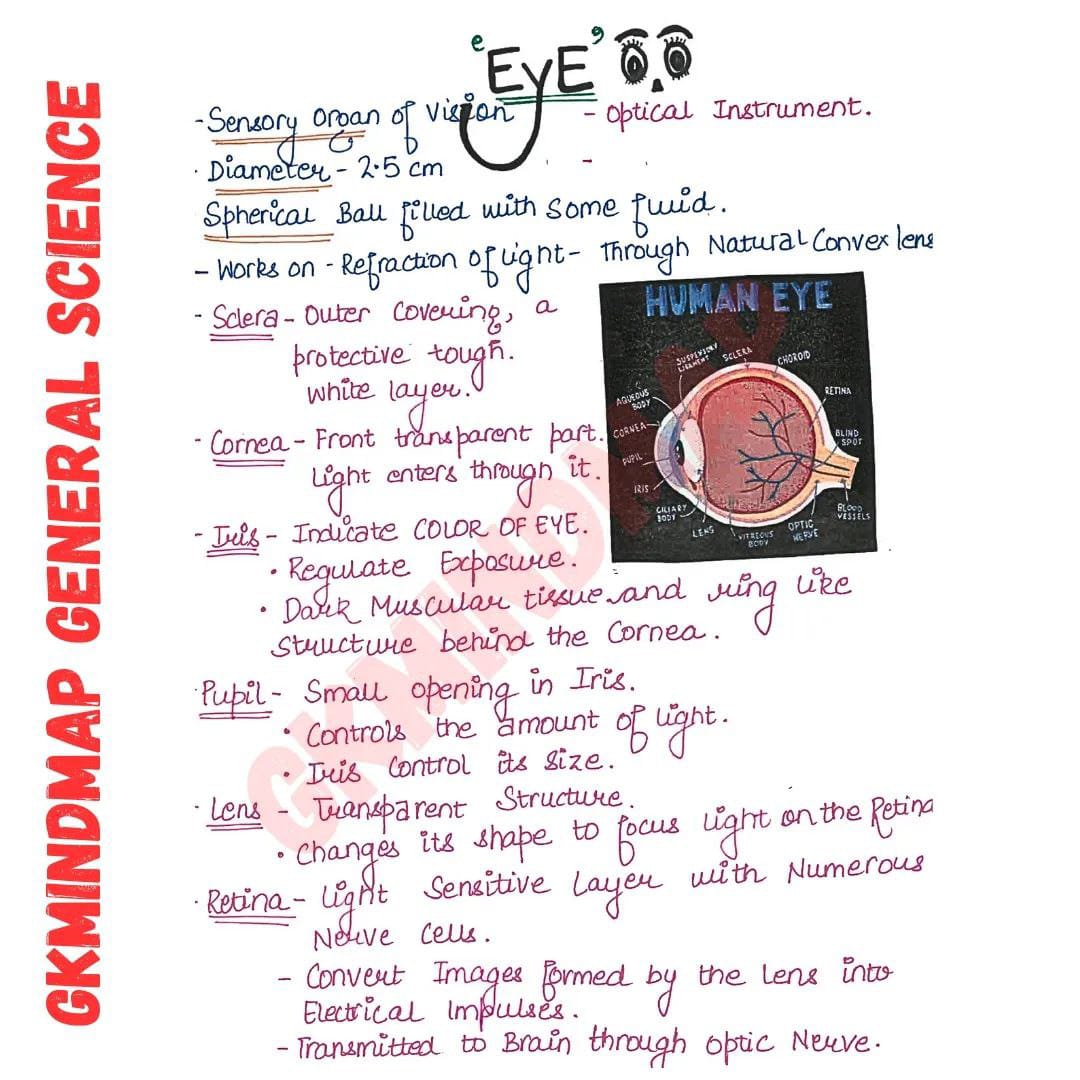 GKMINDMAP GENERAL SCIENCE
'EyE'
- Sensory Organ of Vision - Optical Instrument.
· Diameter - 2.5 cm -
Spherical Ball filled with some fluid.
- Works on - Refraction of light - Through Natural Convex lens
· Sclera - Outer Covering, a
protective tough.
white layer.
· Cornea - Front transparent part.
Light enters through it.
- Iris - Indicate COLOR OF EYE.
• Regulate Exposure.
• Dark Muscular tissue and ring like
structure behind the Cornea.
Pupil - Small opening in Iris.
• Controls the amount of light.
• Iris Control its size.
· Lens - Transparent Structure.
• Changes its shape to focus light on the Retina
· Retina - Light Sensitive Layer with Numerous
Nerve Cells.
- Convert Images formed by the Lens into
Electrical Impulses.
- Transmitted to Brain through Optic Nerve.
HUMAN EYE
SUSPENSORY
LIGAMENT
SCLERA
CHOROID
AQUEOUS
BODY
RETINA
CORNEA
BLIND
SPOT
PUPIL
IRIS
CILIARY
BODY
LENS
VITREOUS
BODY
OPTIC
NERVE
BLOOD
VESSELS
GKMINDMAP